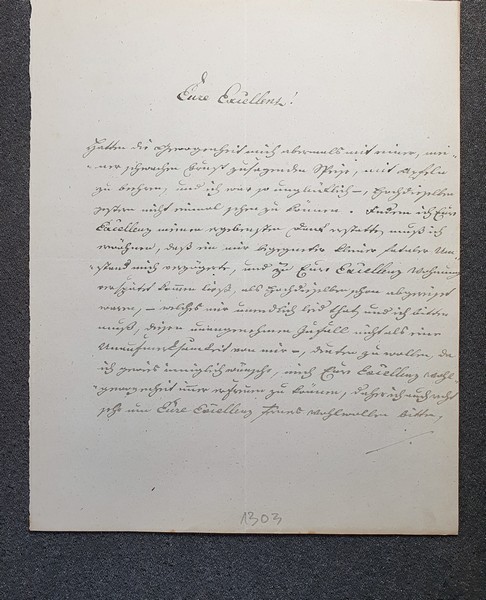 Eure Excellenz!
hatten die Gewogenheit mich abermals mit einer, mei-
ner schwachen Brust zusagenden Speise, mit Aepfeln
zu beehren, und ich war so unglücklich –, Hochdieselben
gestern nicht einmal sehen zu können. Indem ich Eure
Excellenz meinen ergebensten Dank erstatte, muß ich
erwähnen, daß ein mir begegneter kleiner fataler Um-
stand mich verzögerte, und zu Eure Excellenz Wohnung
verspätet kommen ließ, als Hochdieselben schon abgereist
waren, – welches mir unendlich leid that, und ich bitten
muß, diesen unangenehmen Zufall nicht als eine
Unaufmerksamkeit von mir –, deuten zu wollen, da
ich gewiß inniglich wünsche, mich Eure Excellenz Wohl-
gewogenheit immer erfreuen zu können, daher ich auch recht
sehr um Eure Excellenz Wohlwollen bitte,
1303